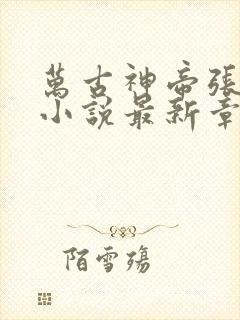 萬古神帝張
小說最新章
陌雪殤